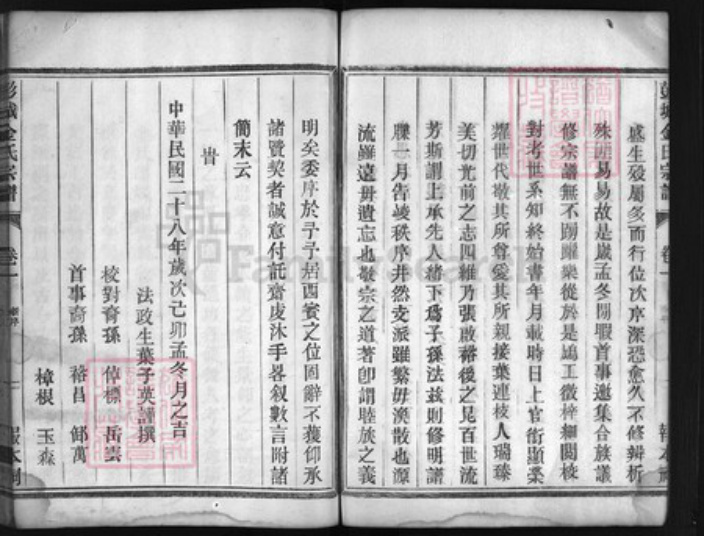 彭城金氏宗譜
卷一
盛生殁屬多而行位次序深恐愈久不修辨析
殊匪易易故是歲孟冬閒暇首事邀集合族議
修宗譜無不踴躍樂從於是鳩工徵梓細閱校
對考世系知終始書年月載時日上官銜顯榮
耀世代敬其所尊愛其所親接葉連枝人瑞臻
美切光前之志四維乃張啟裕後之昆百世流
芳斯謂上承先人緒下為子孫法玆則修明譜
牒一月告峻秩序井然支派雖繁毋渙散也源
流雖遠毋遺忘也敬宗之道著卽謂睦族之義
明矣委序於予予居西賓之位固辭不獲仰承
諸賢契者誠意付託齋虔沐手畧叙數言附諸
簡末云
旹
中華民國二十八年歲次己卯孟冬月之吉
法政生葉子英謹撰
校對裔孫 倬標 岳雲
首事裔孫 裕昌 郇萬
樟根 玉森
彭城金氏宗譜
卷一
報本祠
FamilySearch